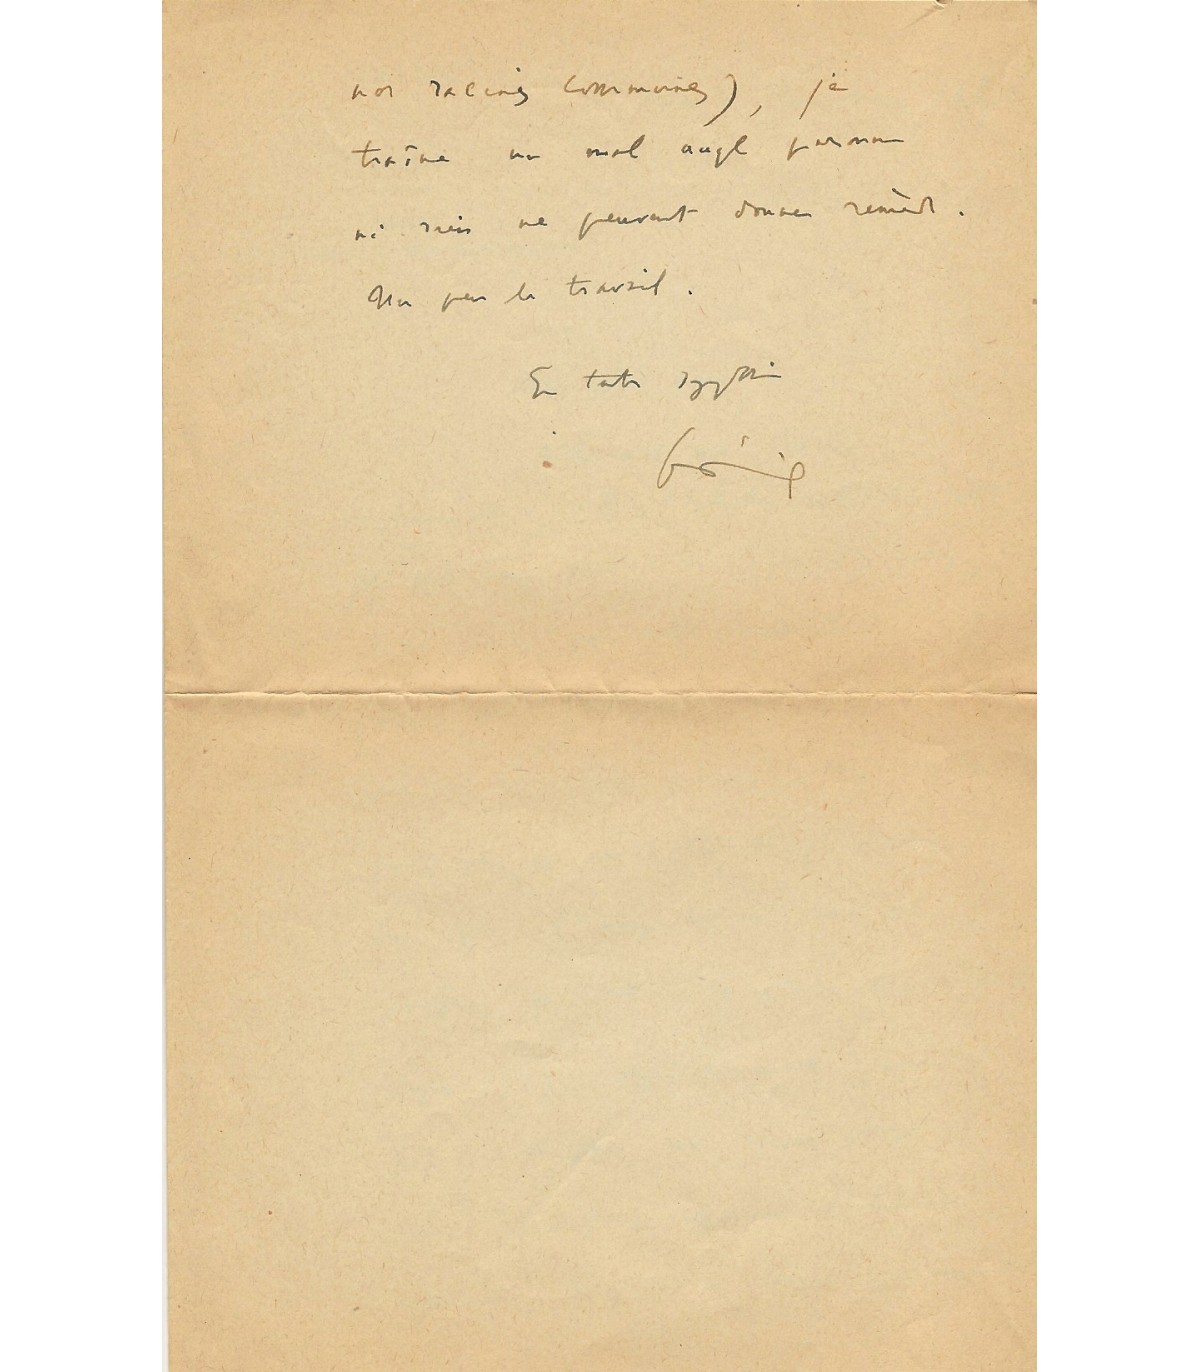 nos racines communes), je
traîne un mal auql personne
ni rien ne peuvent donner remède.
Un peu le travail.
En toute sympathie